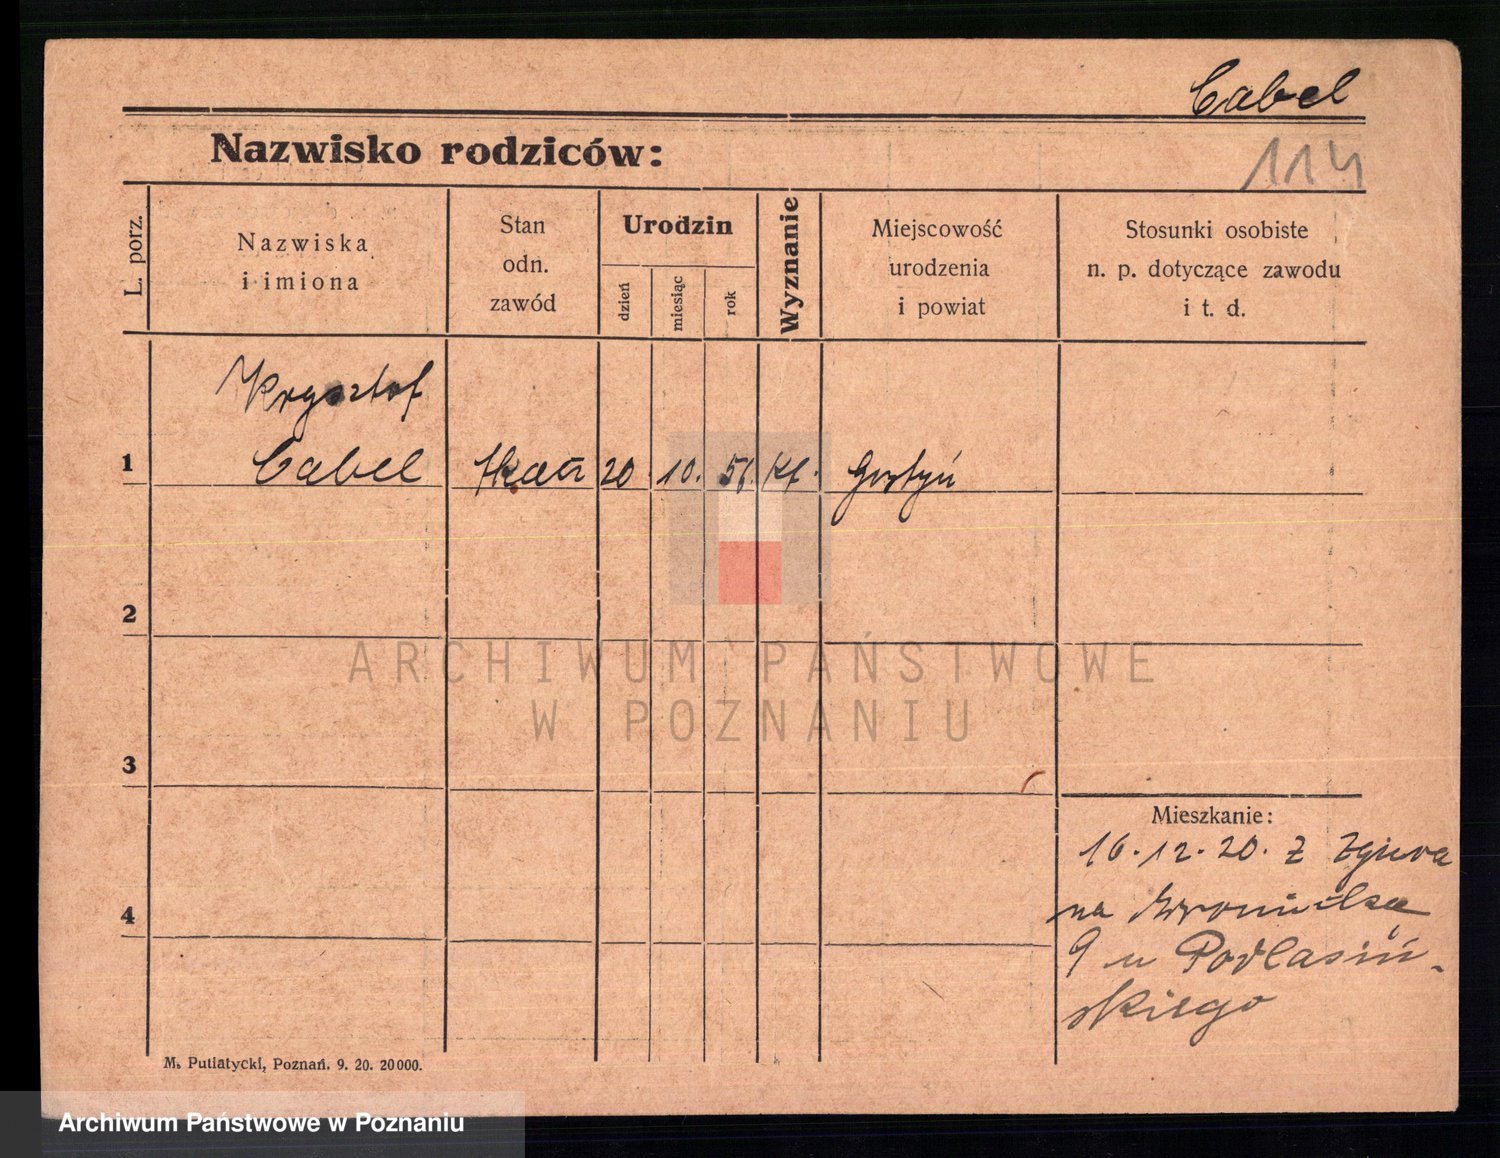 Cabel
114
Nazwisko rodziców:
L. porz.
Nazwiska
i imiona
Stan
odn.
zawód
Urodzin
dzień
miesiąc
rok
Wyznanie
Miejscowość
urodzenia
i powiat
Stosunki osobiste
n. p. dotyczące zawodu
i t. d.
Krysztof
1 Cabel 20. 10. Kt. Gostyń
2
3
4
Mieszkanie:
16.12.20. z
na
9 u Podlasiń-
skiego
M. Putiatycki, Poznań. 9. 20. 20000.
ARCHIWUM PAŃSTWOWE
W POZNANIU
Archiwum Państwowe w Poznaniu